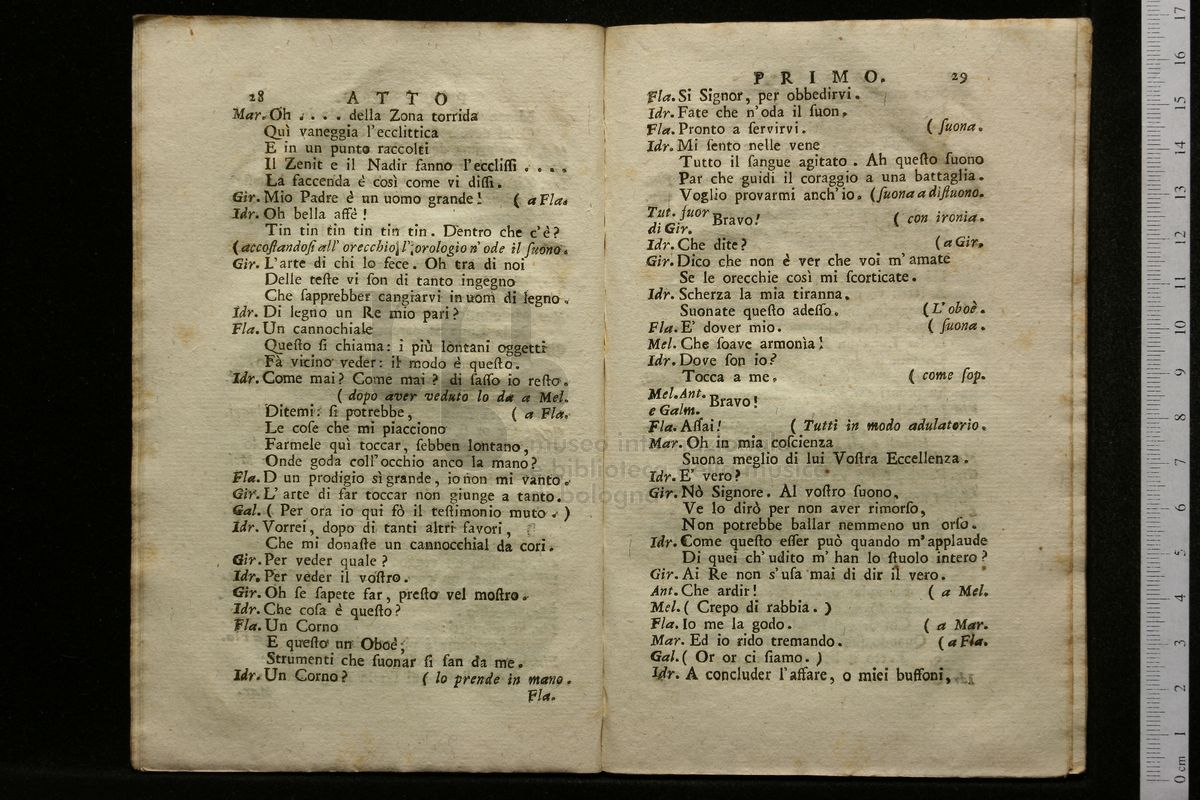 28 ATTO
Mar. Oh . . . . della Zona torrida
Quì vaneggia l'ecclittica
E in un punto raccolti
Il Zenit e il Nadir fanno l'eccliſſi . . . .
La faccenda è così come vi diſſi.
Gir. Mio Padre è un uomo grande! ( a Fla.
Idr. Oh bella affè!
Tin tin tin tin tin tin. Dentro che c'è?
(accoſtandoſi all' orecchio l' orologio n' ode il ſuono.
Gir. L'arte di chi lo fece. Oh tra di noi
Delle teſte vi ſon di tanto ingegno
Che ſapprebber cangiarvi in uom di legno.
Idr. Di legno un Re mio pari?
Fla. Un cannochiale
Queſto ſi chiama: i più lontani oggetti
Fà vicino veder: il modo è queſto.
Idr. Come mai? Come mai? di ſaſſo io reſto.
( dopo aver veduto lo da a Mel.
Ditemi: ſi potrebbe, ( a Fla.
Le coſe che mi piacciono
Farmele quì toccar, ſebben lontano,
Onde goda coll'occhio anco la mano?
Fla. D un prodigio sì grande, io non mi vanto.
Gir. L' arte di far toccar non giunge a tanto.
Gal. ( Per ora io qui fò il teſtimonio muto. )
Idr. Vorrei, dopo di tanti altri favori,
Che mi donaſte un cannocchial da cori.
Gir. Per veder quale?
Idr. Per veder il voſtro.
Gir. Oh ſe ſapete far, preſto vel moſtro.
Idr. Che coſa è queſto?
Fla. Un Corno
E queſto un Oboè,
Strumenti che ſuonar ſi fan da me.
Idr. Un Corno? ( lo prende in mano.
Fla.
PRIMO. 29
Fla. Si Signor, per obbedirvi.
Idr. Fate che n'oda il ſuon.
Fla. Pronto a ſervirvi. ( ſuona.
Idr. Mi ſento nelle vene
Tutto il ſangue agitato. Ah queſto ſuono
Par che guidi il coraggio a una battaglia.
Voglio provarmi anch'io. (ſuona a diſſuono.
Tut. fuor di Gir. Bravo! ( con ironia.
Idr. Che dite? (a Gir.
Gir. Dico che non è ver che voi m'amate
Se le orecchie così mi ſcorticate.
Idr. Scherza la mia tiranna.
Suonate queſto adeſſo. (L'oboè.
Fla. E' dover mio. ( ſuona.
Mel. Che ſoave armonìa!
Idr. Dove ſon io?
Tocca a me. ( come ſop.
Mel. Ant. e Galm. Bravo!
Fla. Aſſai! ( Tutti in modo adulatorio.
Mar. Oh in mia coſcienza
Suona meglio di lui Voſtra Eccellenza.
Idr. E' vero?
Gir. Nò Signore. Al voſtro ſuono,
Ve lo dirò per non aver rimorſo,
Non potrebbe ballar nemmeno un orſo.
Idr. Come queſto eſſer può quando m'applaude
Di quei ch'udito m'han lo ſtuolo intero?
Gir. Ai Re non s'uſa mai di dir il vero.
Ant. Che ardir! ( a Mel.
Mel. ( Crepo di rabbia. )
Fla. Io me la godo. ( a Mar.
Mar. Ed io rido tremando. (a Fla.
Gal. ( Or or ci ſiamo. )
Idr. A concluder l'affare, o miei buffoni,